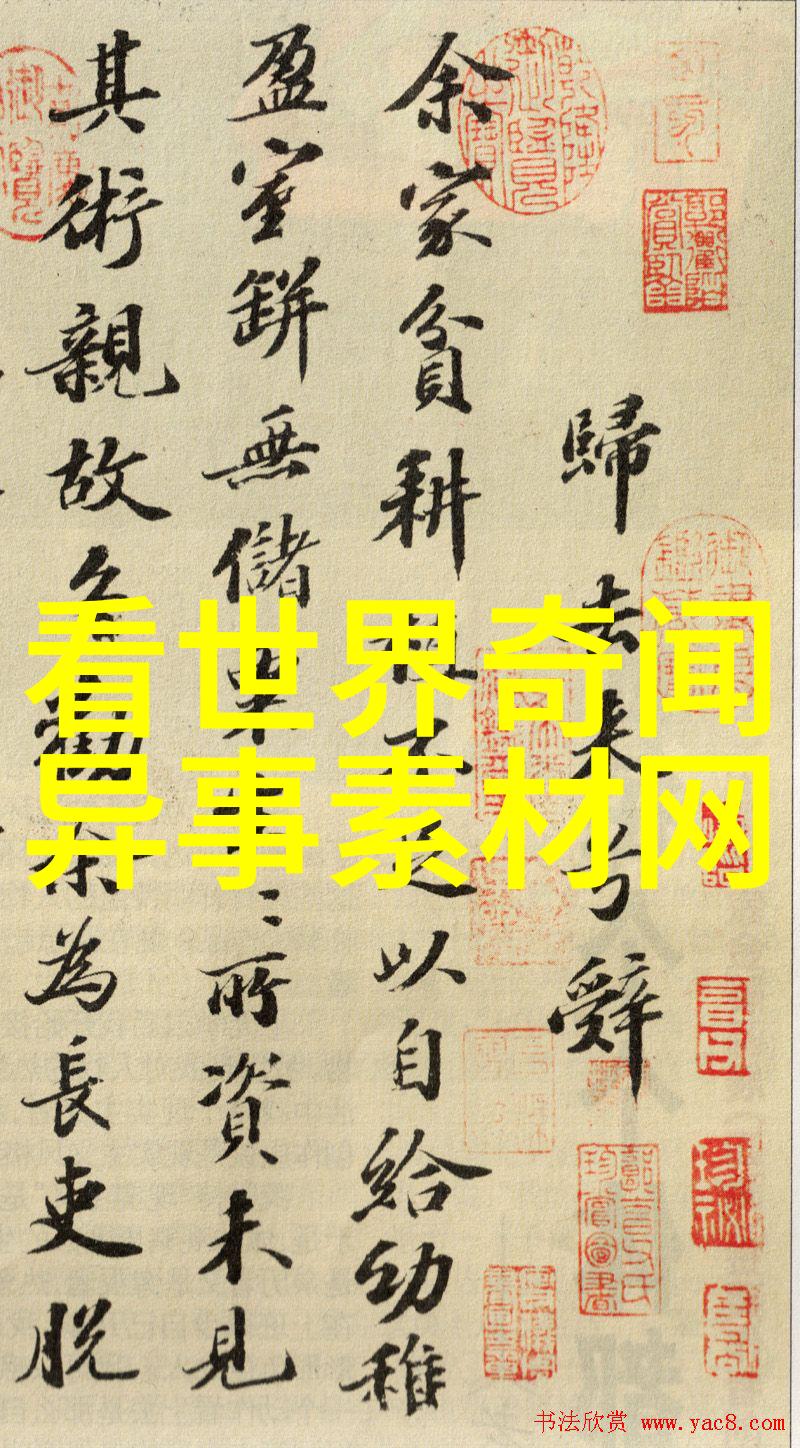 歸去来兮辭
余家貧耕植不足以自給幼稚
盈室缾無儲粟生〻所資未見
其術親故多勸余為長吏脱
看世界奇闻
异事素材网
书法欣赏 www.yac8.com